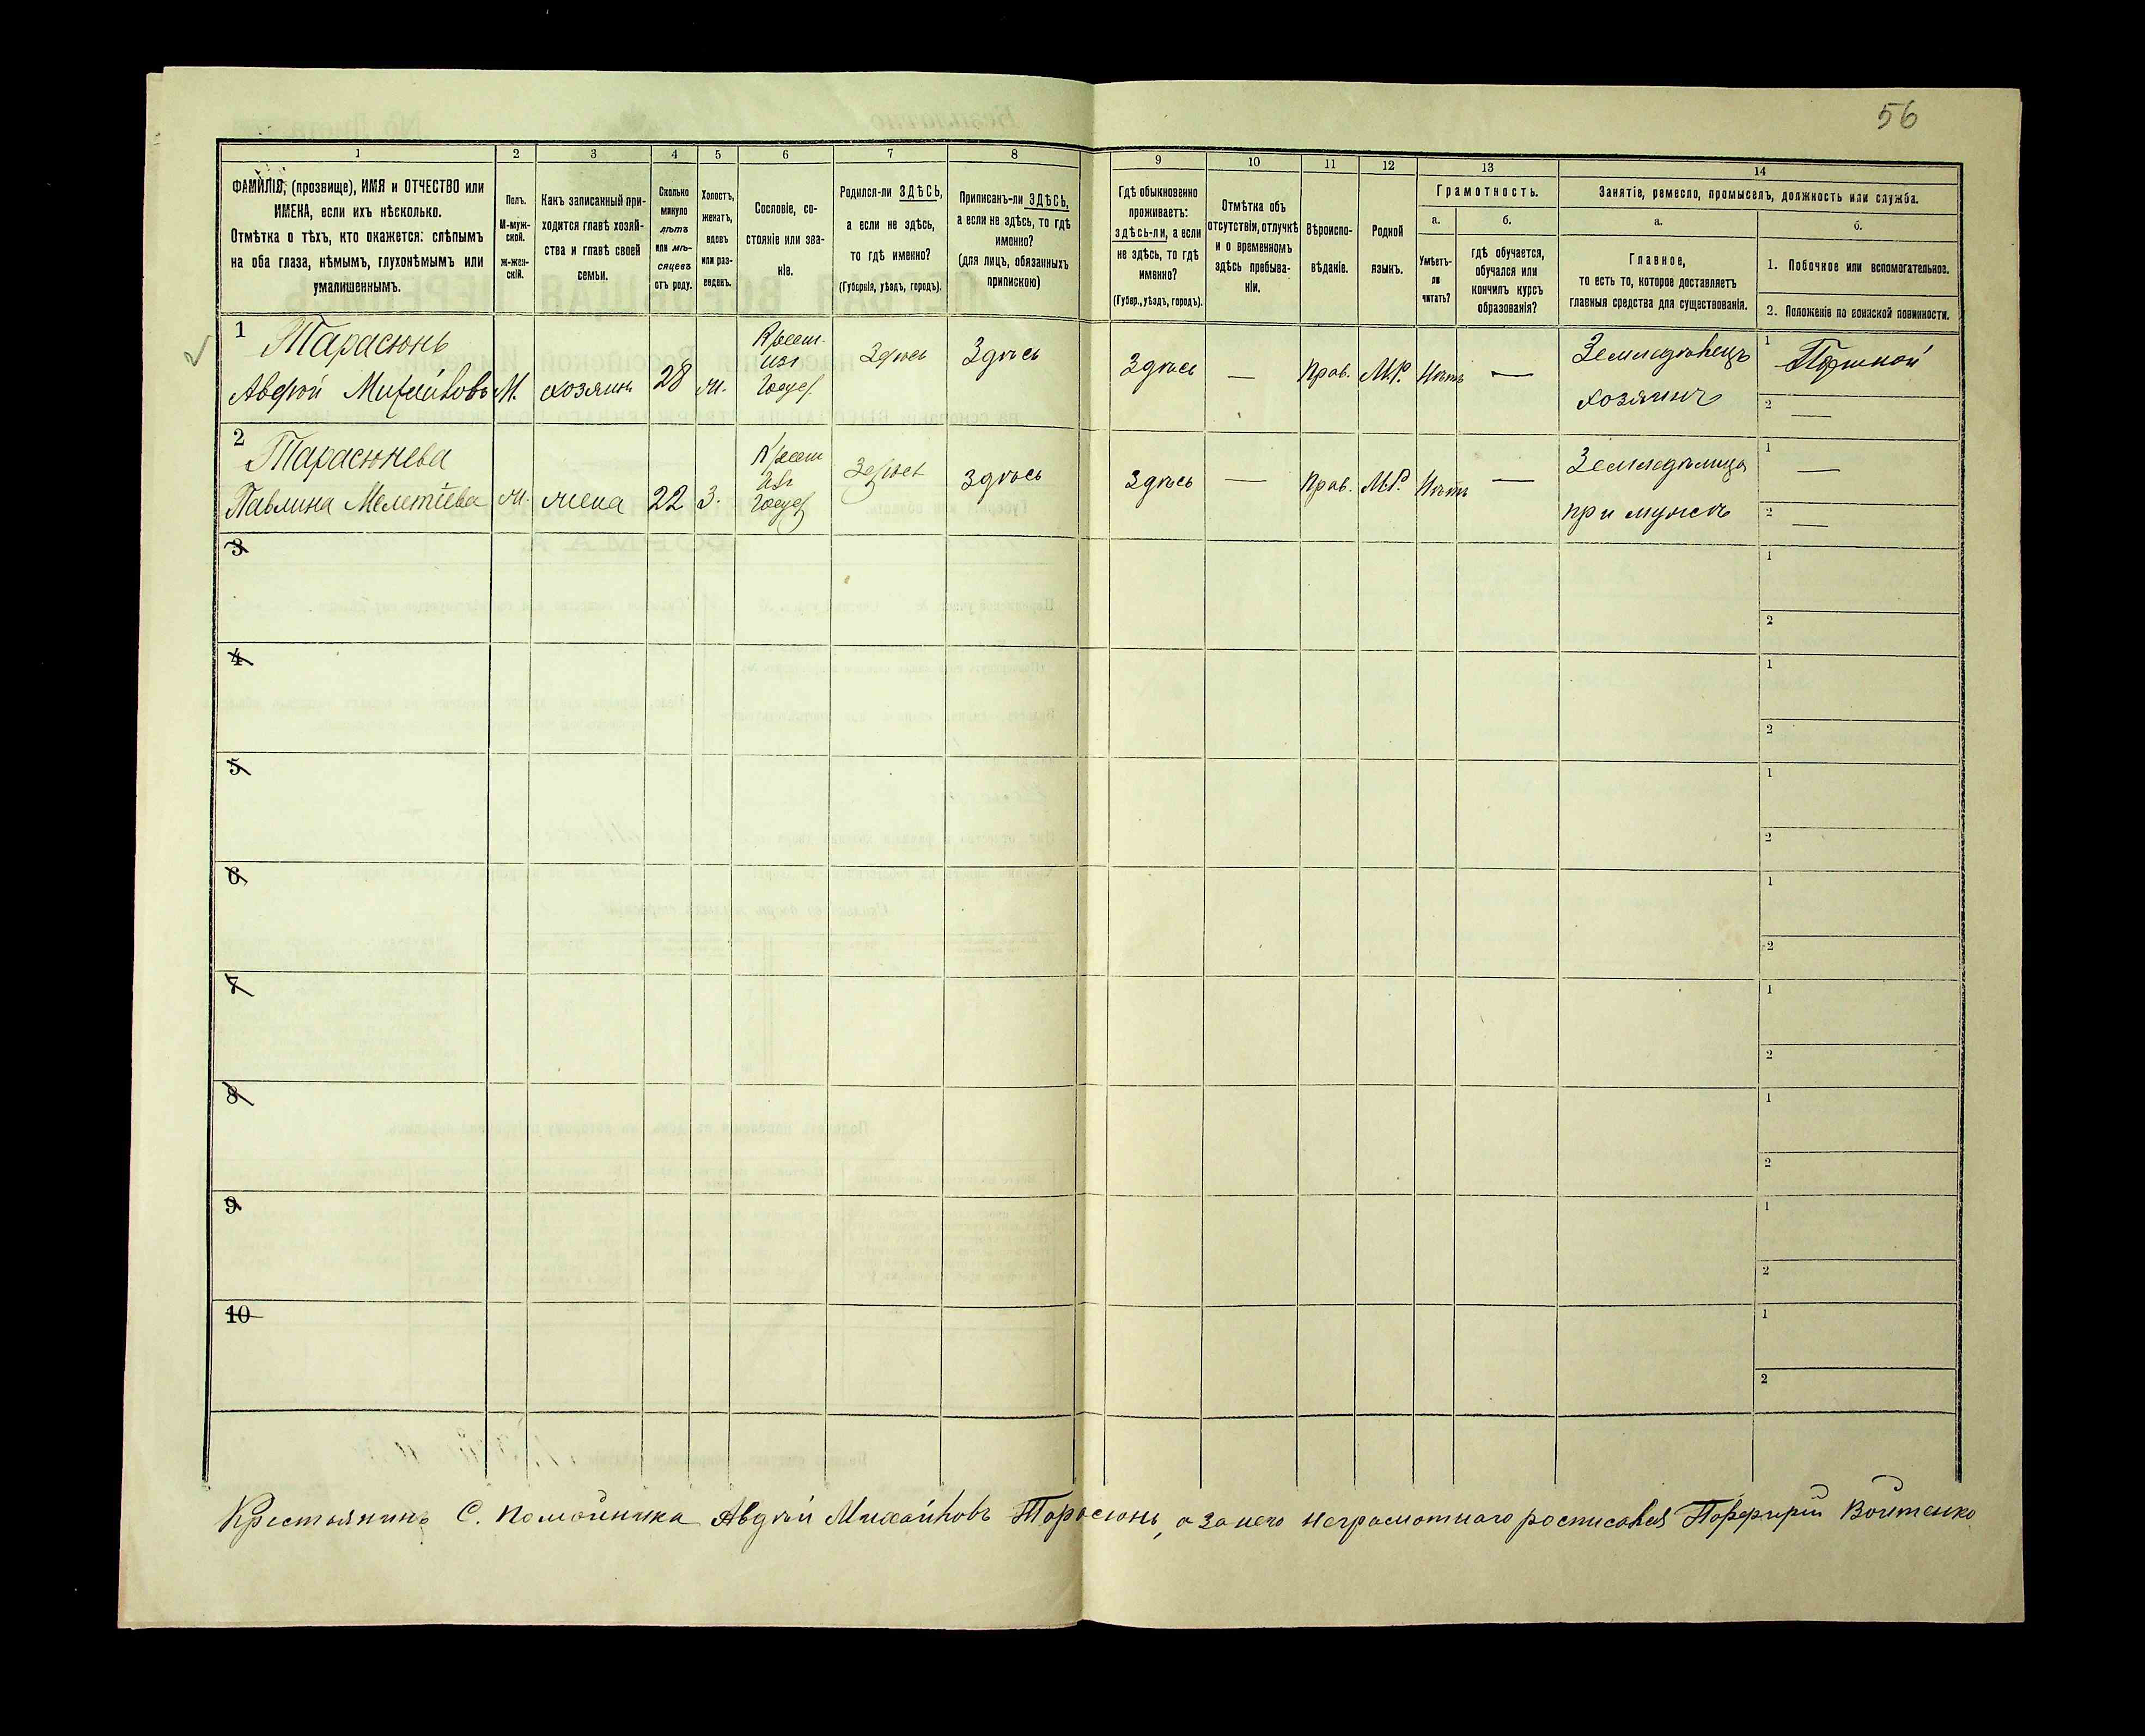 56
1 2 3 4 5 6 7 8 9 10 11 12 13 14
ФАМИЛІЯ, (прозвище), ИМЯ и ОТЧЕСТВО или
ИМЕНА, если ихъ нѣсколько.
Отмѣтка о тѣхъ, кто окажется: слѣпымъ
на оба глаза, нѣмымъ, глухонѣмымъ или
умалишеннымъ.
Полъ.
М-муж-
ской.
ж-жен-
скій.
Какъ записанный при-
ходится главѣ хозяй-
ства и главѣ своей
семьи.
Сколько
минуло
лѣтъ
или мѣ-
сяцевъ
отъ роду.
Холостъ,
женатъ,
вдовъ
или раз-
веденъ.
Сословіе, со-
стояніе или зва-
ніе.
Родился-ли ЗДѢСЬ,
а если не здѣсь,
то гдѣ именно?
(Губернія, уѣздъ, городъ).
Приписанъ-ли ЗДѢСЬ,
а если не здѣсь, то гдѣ
именно?
(для лицъ, обязанныхъ
припискою)
Гдѣ обыкновенно
проживаетъ:
здѣсь-ли, а если
не здѣсь, то гдѣ
именно?
(Губер., уѣздъ, городъ).
Отмѣтка объ
отсутствіи, отлучкѣ
и о временномъ
здѣсь пребыва-
ніи.
Вѣроиспо-
вѣданіе.
Родной
языкъ.
Грамотность.
а.
Умѣетъ-
ли
читать?
б.
гдѣ обучается,
обучался или
кончилъ курсъ
образованія?
Занятіе, ремесло, промыселъ, должность или служба.
а.
Главное,
то есть то, которое доставляетъ
главныя средства для существованія.
б.
1. Побочное или вспомогательное.
2. Положеніе по воинской повинности.
1 Тарасюнь
Авдѣй Михайловъ М. хозяинъ 28 ж. Крест. изъ Госуд. Здѣсь Здѣсь Здѣсь — Прав. М.Р. Нѣтъ — Земледѣлецъ хозяинъ
1
2 —
2 Тарасюнева
Павлина Мелетіева ж. жена 22 З. Крест изъ Госуд Здѣсь Здѣсь Здѣсь — Прав. М.Р. Нѣтъ — Земледѣлица при мужѣ
1 —
2 —
3 1
2
4 1
2
5 1
2
6 1
2
7 1
2
8 1
2
9 1
2
10 1
2
Крестьянинъ С. Помойника Авдѣй Михайловъ Тарасюнь, а за него неграмотнаго росписался Порфирій Войтенко